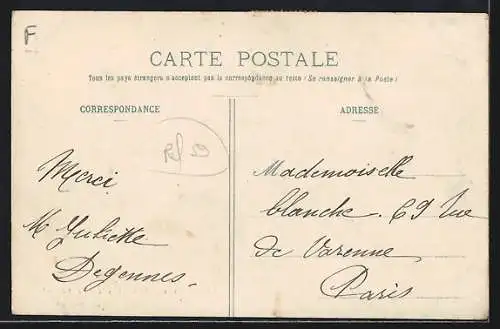 F
CARTE POSTALE
Tous les pays étrangers n'acceptent pas la correspondance au recto (Se renseigner à la Poste)
CORRESPONDANCE
ADRESSE
Merci
M Juliette
Degennes.
Mademoiselle
blanche. 69 Rue
de Varenne
Paris